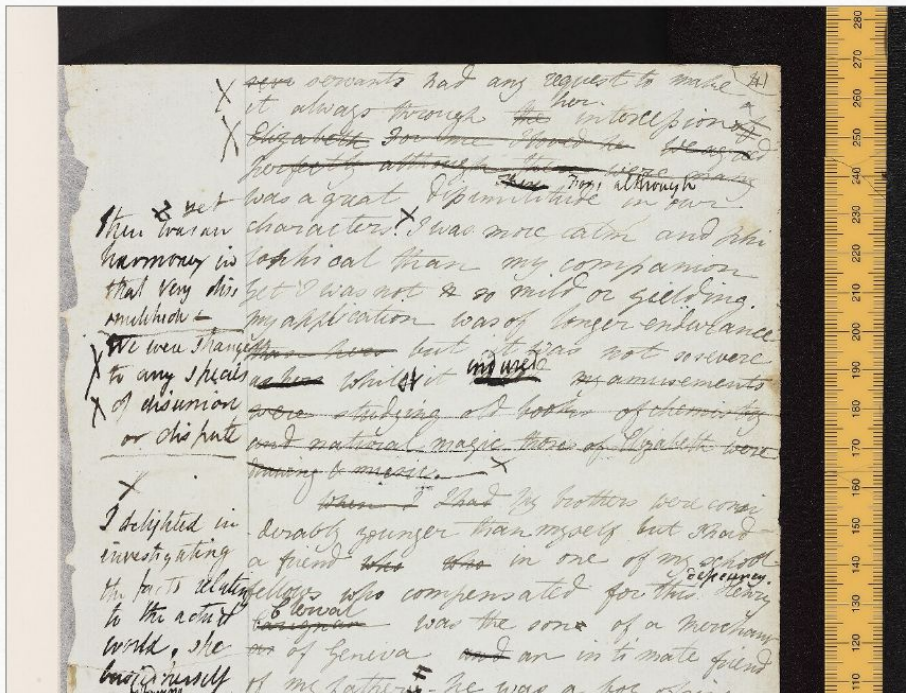 servants had any request to make
it always through the her. intercession
Elizabeth For me I loved he We agreed
perfectly although there were many
for, although
was a great dissimilitude in our
characters. I was more calm and philo
sophical than my companion
yet I was not so mild or yielding.
my application was of longer endurance
than hers but it was not so severe
as hers whilst it endured my amusements
were studying old books of chemistry
and natural magic those of Elizabeth were
drawing & music
when I I had My brothers were consi
derably younger than myself but I had
a friend who who in one of my school
fellows who compensated for this deficiency. Henry
Clerval
was the son of a merchant
of Geneva and an intimate friend
of my father he was a boy of
X yet
there was an
harmony in
that very dis
similitude
We were strangers
to any species
of disunion
or dispute
X
I delighted in
investigating
the facts relating
to the actual
world, she
busied herself
4
280
270
260
250
240
230
220
210
200
190
180
170
160
150
140
130
120
110